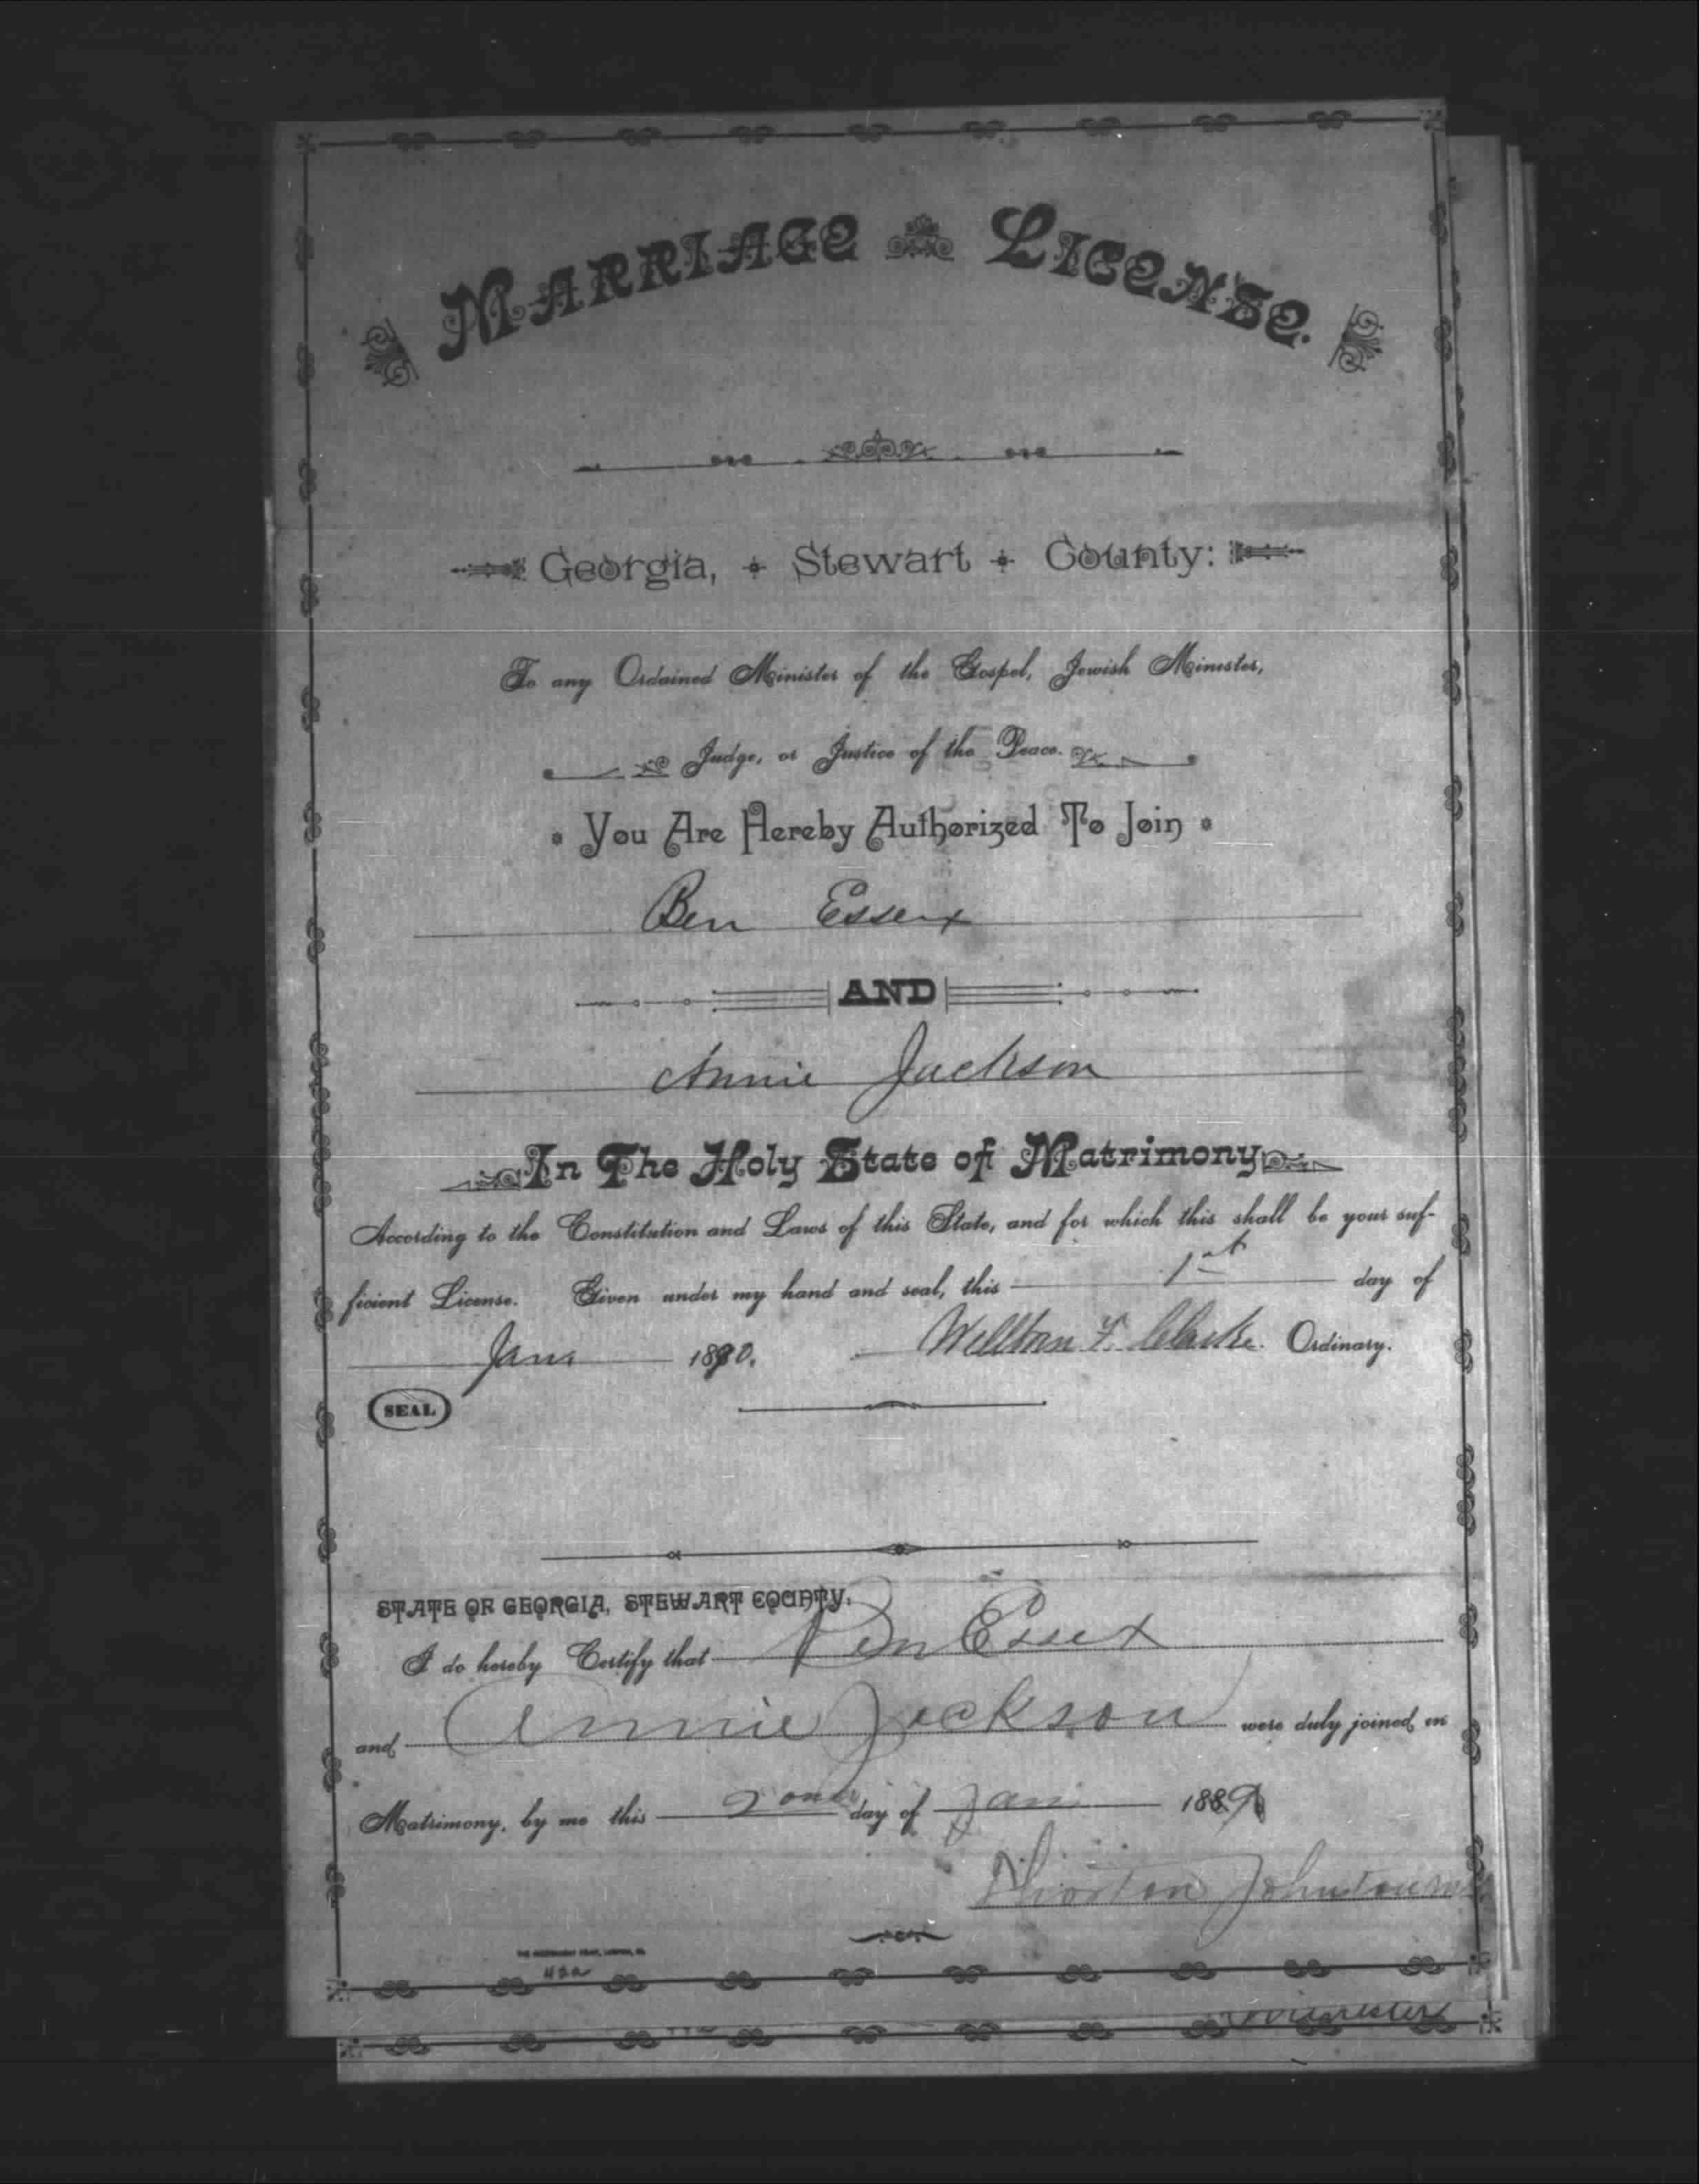 MARRIAGE LICENSE.
Georgia, Stewart County:
To any Ordained Minister of the Gospel, Jewish Minister,
Judge, or Justice of the Peace.
You Are Hereby Authorized To Join
Ben Essex
AND
Annie Jackson
In The Holy State of Matrimony
According to the Constitution and Laws of this State, and for which this shall be your suf-
ficient License. Given under my hand and seal, this 1st day of
Jany 1890. F. Clarke. Ordinary.
SEAL
STATE OF GEORGIA, STEWART COUNTY.
I do hereby Certify that Ben Essex
and Annie Jackson were duly joined in
Matrimony, by me this 2 ond day of Jan 189
Johnson